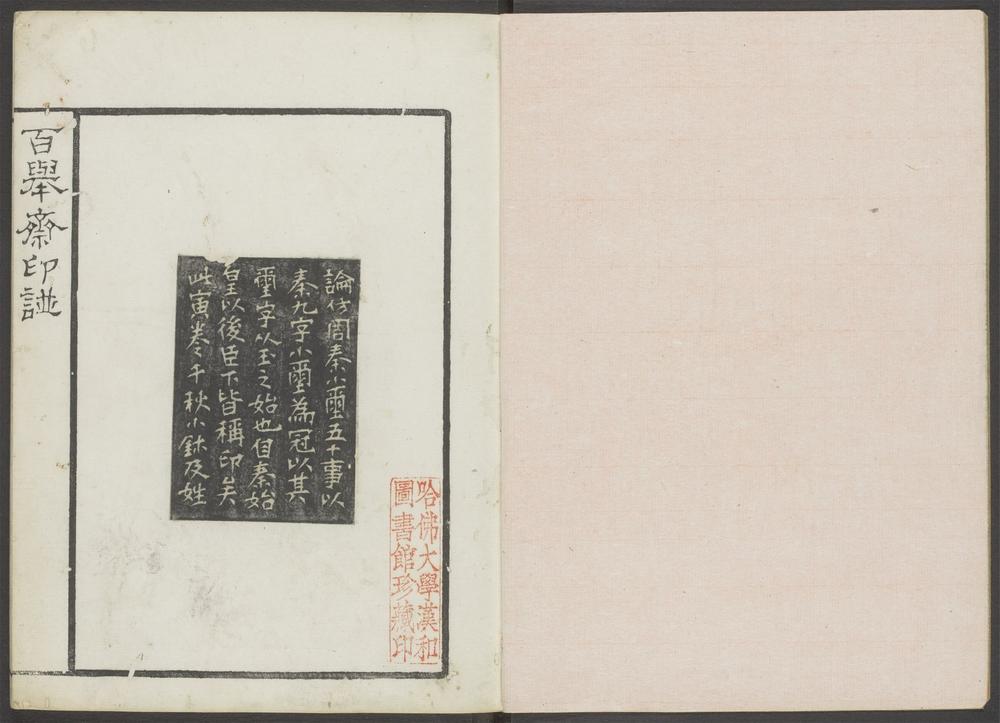 論仿周秦小璽五千事以
秦九字小璽為冠以其
璽字从玉之始也自秦始
皇以後臣下皆稱印矣
此寅卷千秋小鉥及姓
哈佛大學漢和
圖書館珍藏印
百舉齋印譜